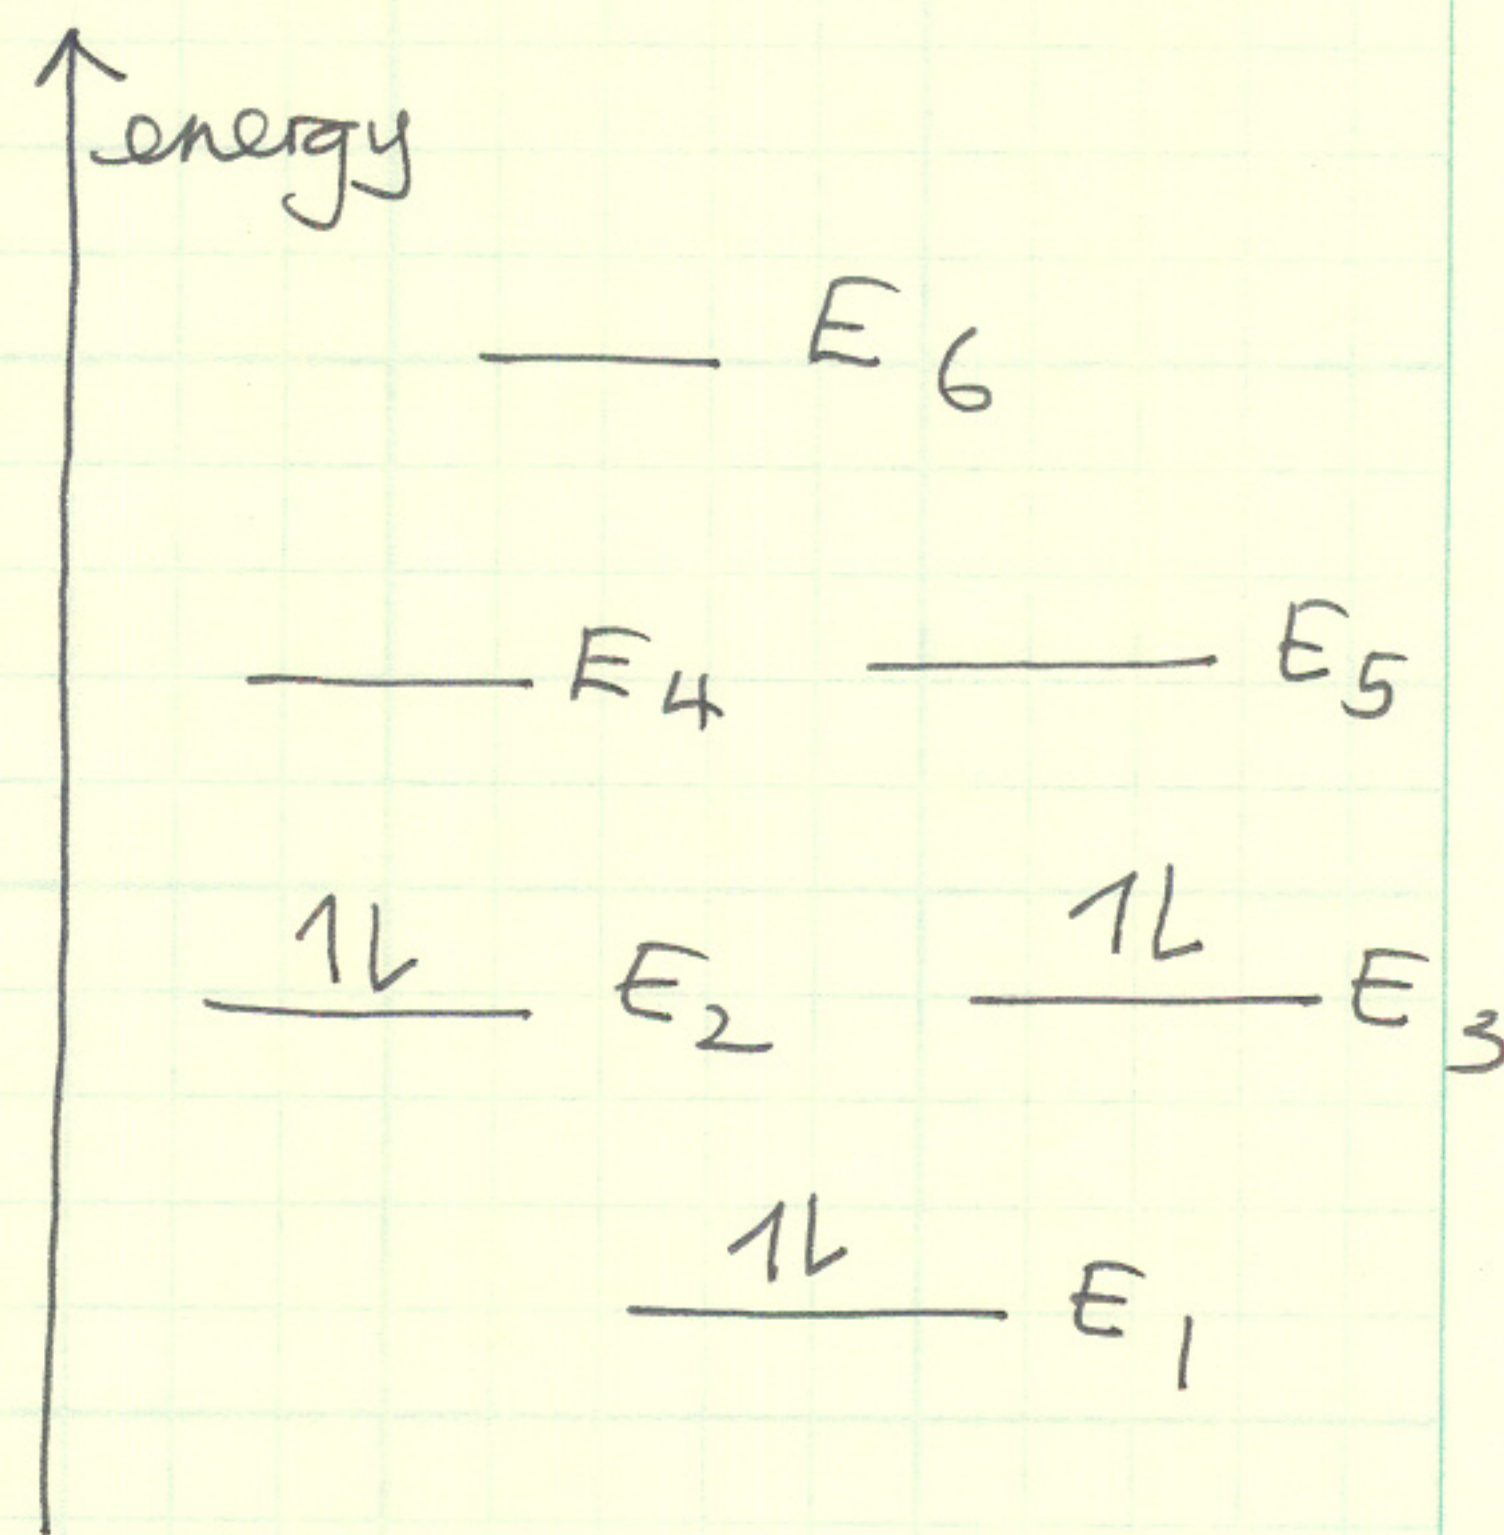 energy
E6
E4 E5
1L 1L
E2 E3
1L
E1